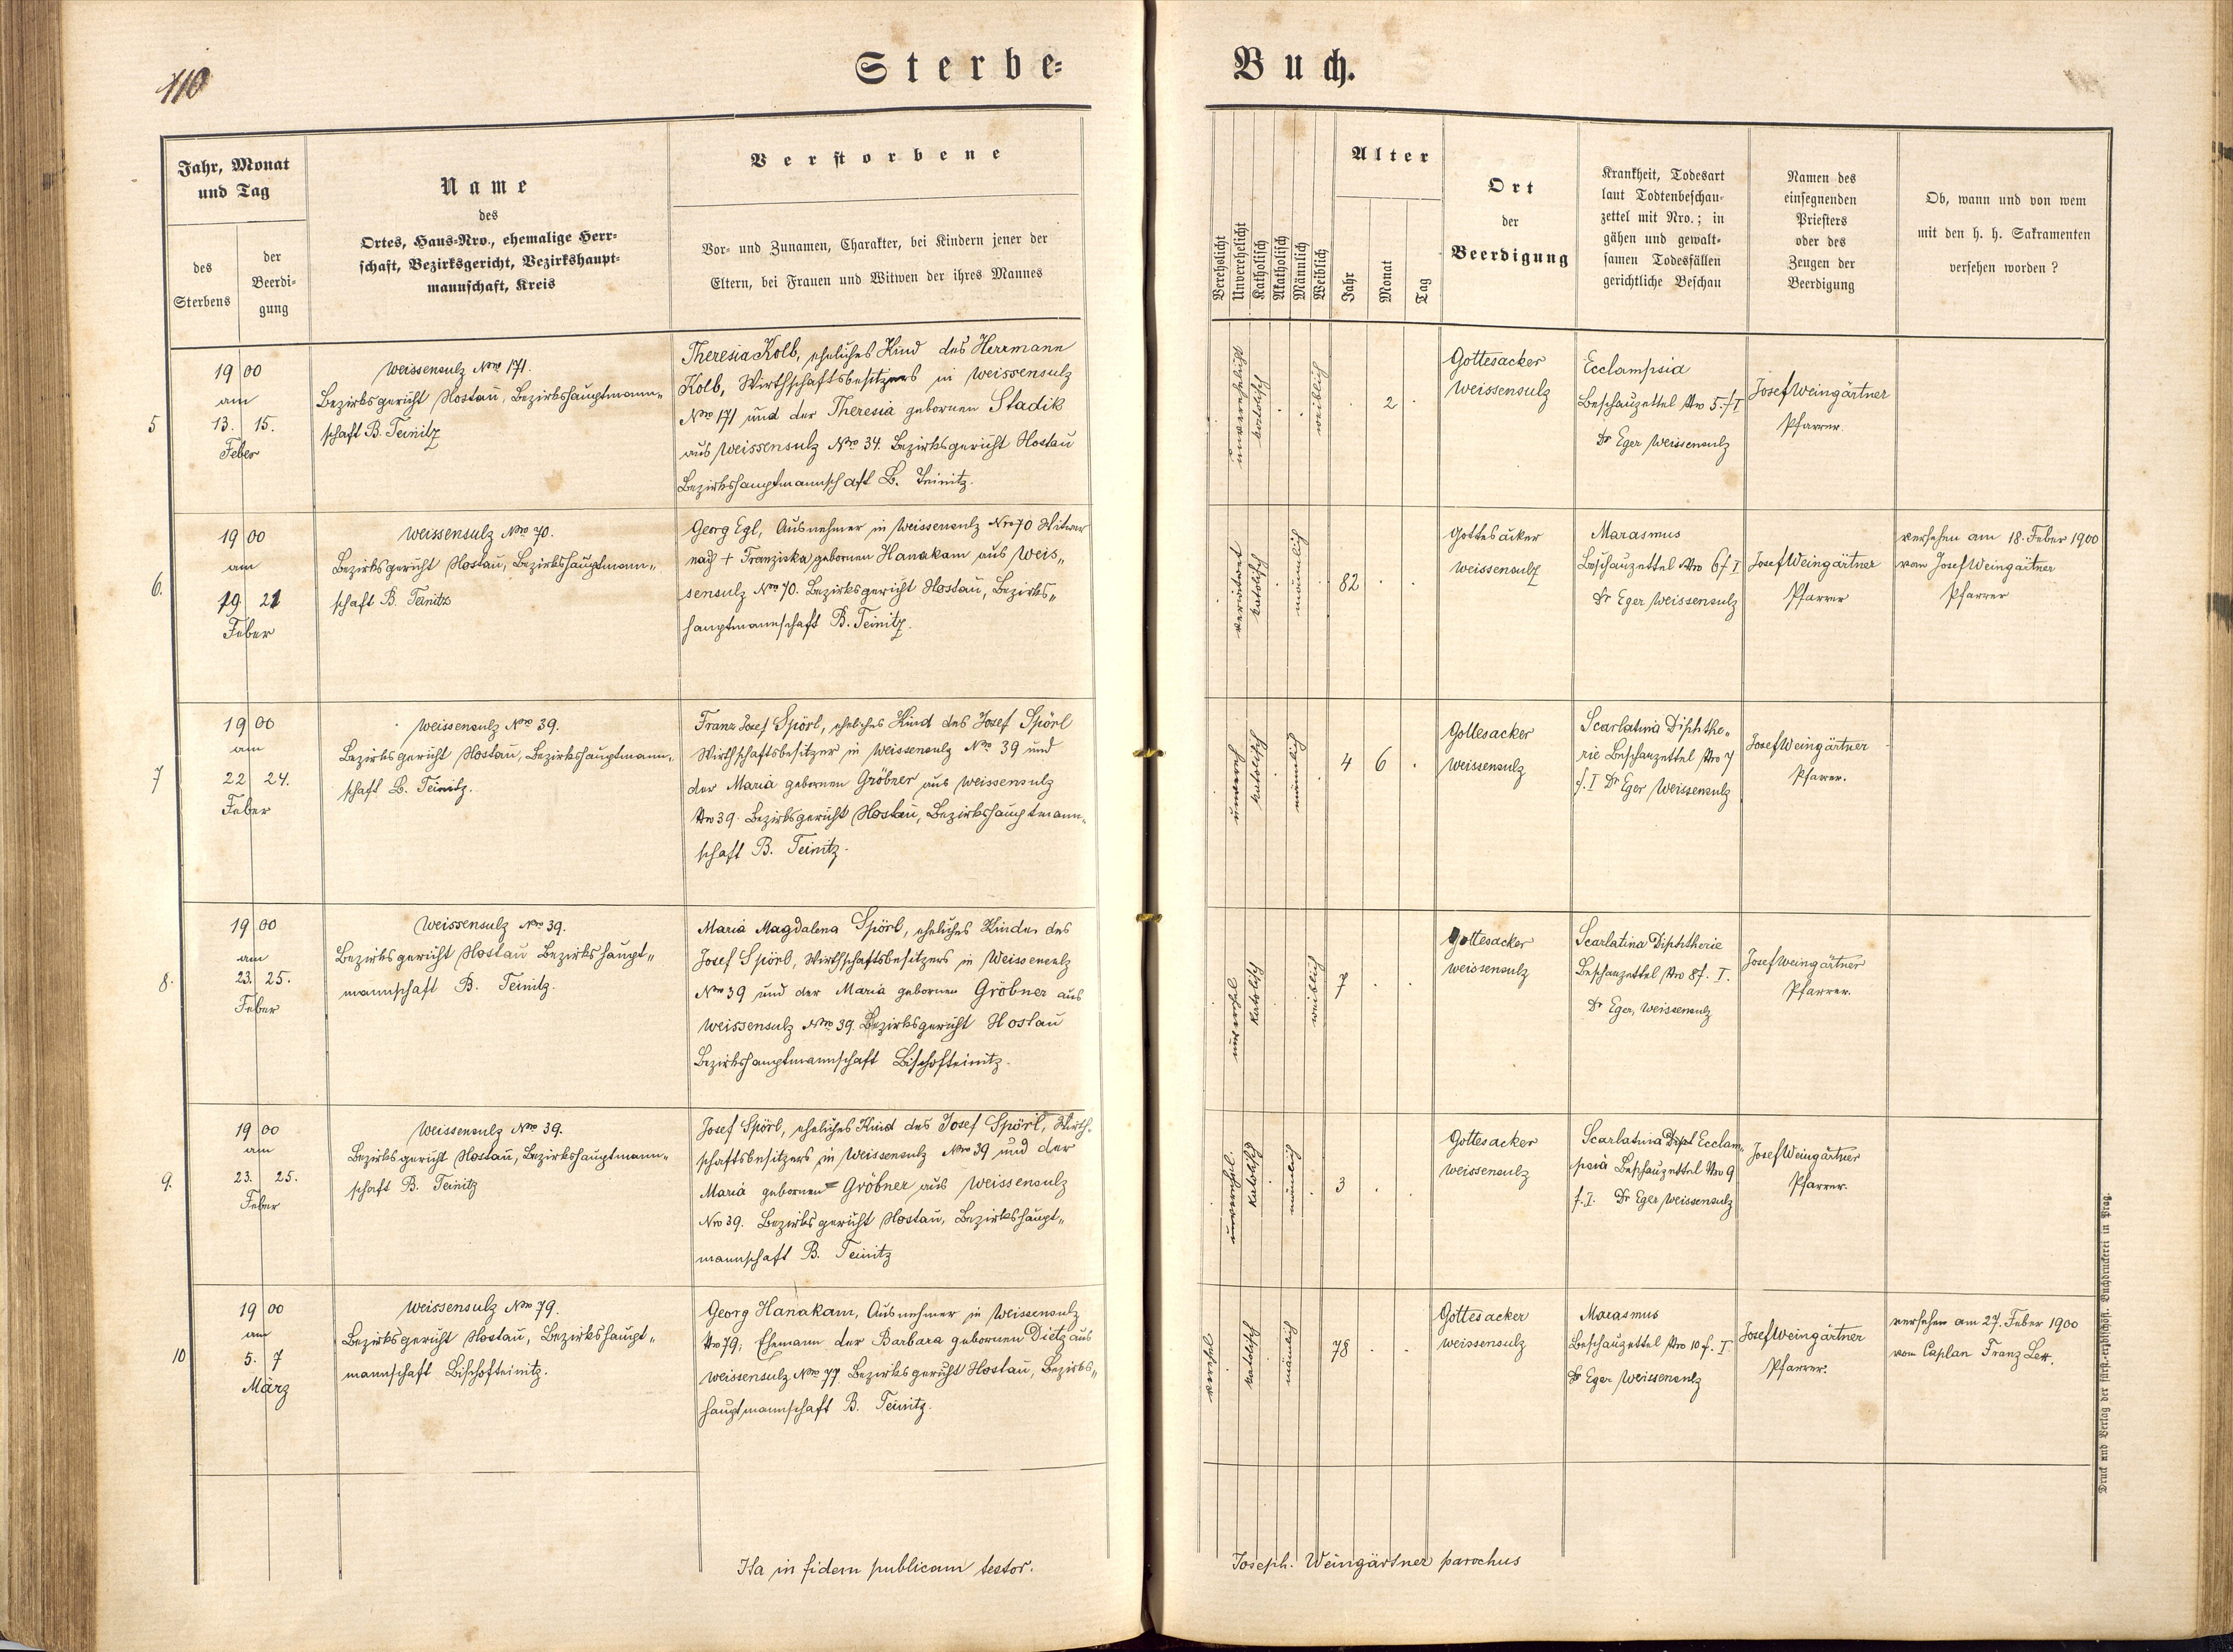 110
Sterbe=
Buch.
Jahr, Monat
und Tag
des
Sterbens
der
Beerdi=
gung
Name
des
Ortes, Haus-Nro., ehemalige Herr=
schaft, Bezirksgericht, Bezirkshaupt=
mannschaft, Kreis
Verstorbene
Vor- und Zunamen, Charakter, bei Kindern jener der
Eltern, bei Frauen und Witwen der ihres Mannes
Verehelicht
Unverehelicht
Katholisch
Akatholisch
Männlich
Weiblich
Alter
Jahr
Monat
Tag
Ort
der
Beerdigung
Krankheit, Todesart
laut Todtenbeschau=
zettel mit Nro.; in
gähen und gewalt=
samen Todesfällen
gerichtliche Beschau
Namen des
einsegnenden
Priesters
oder des
Zeugen der
Beerdigung
Ob, wann und von wem
mit den h. h. Sakramenten
versehen worden?
5
1900
am
13. 15.
Feber
Weissensulz Nro 171.
Bezirksgericht Hostau, Bezirkshauptmann„
schaft B. Teinitz
Theresia Kolb, eheliches Kind des Herrmann
Kolb, Wirthschaftsbesitzers in Weissensulz
Nro 171 und der Theresia gebornen Stadik
aus Weissensulz Nro 34. Bezirksgericht Hostau
Bezirkshauptmannschaft B. Teinitz.
unverehelicht
katolisch
weiblich
2
Gottesacker
Weissensulz
Ecclampsia
Beschauzettel Nro 5. f I
Dr Eger Weissensulz
Josef Weingärtner
Pfarrer.
6.
1900
am
19 21
Feber
Weissensulz Nro 70.
Bezirksgericht Hostau, Bezirkshauptmann„
schaft B. Teinitz
Georg Egl, Ausnehmer in Weissensulz Nro 70 Witwer
nach + Franziska gebornen Hanakam aus Weis„
sensulz Nro 70. Bezirksgericht Hostau, Bezirks„
hauptmannschaft B. Teinitz.
verwitwet
katolisch
männlich
82
Gottesacker
Weissensulz
Marasmus
Beschauzettel Nro 6 f I
Dr Eger Weissensulz
Josef Weingärtner
Pfarrer
versehen am 18. Feber 1900
vom Josef Weingärtner
Pfarrer
7
1900
am
22 24.
Feber
Weissensulz Nro 39.
Bezirksgericht Hostau, Bezirkshauptmann„
schaft B. Teinitz.
Franz Josef Spörl, eheliches Kind des Josef Spörl
Wirthschaftsbesitzer in Weissensulz Nro 39 und
der Maria gebornen Gröbner aus Weissensulz
Nro 39. Bezirksgericht Hostau, Bezirkshauptmann„
schaft B. Teinitz.
unvereh
katolisch
männlich
4 6
Gottesacker
Weissensulz
Scarlatina Diphthe„
rie Beschauzettel Nro 7
f. I Dr Eger Weissensulz
Josef Weingärtner
Pfarrer.
8.
1900
am
23. 25.
Feber
Weissensulz Nro 39.
Bezirksgericht Hostau Bezirkshaupt„
mannschaft B. Teinitz.
Maria Magdalena Spörl, eheliches Kinder des
Josef Spörl, Wirthschaftsbesitzers in Weissensulz
Nro 39 und der Maria gebornen Gröbner aus
Weissensulz Nro 39. Bezirksgericht Hostau
Bezirkshauptmannschaft Bischofteinitz.
unverehel
katolisch
weiblich
7
Gottesacker
Weissensulz
Scarlatina Diphtherie
Beschauzettel Nro 8 f. I.
Dr Eger, Weissensulz
Josef Weingärtner
Pfarrer.
9.
1900
am
23. 25.
Feber
Weissensulz Nro 39.
Bezirksgericht Hostau, Bezirkshauptmann„
schaft B. Teinitz
Josef Spörl, eheliches Kind des Josef Spörl, Wirth„
schaftsbesitzers in Weissensulz Nro 39 und der
Maria gebornen Gröbner aus Weissensulz
Nro 39. Bezirksgericht Hostau, Bezirkshaupt„
mannschaft B. Teinitz
unverehel.
katolisch
männlich
3
Gottesacker
Weissensulz
Scarlatina Dipt Ecclam„
psia Beschauzettel Nro 9
f. I. Dr Eger Weissensulz
Josef Weingärtner
Pfarrer.
10
1900
am
5. 7
März
Weissensulz Nro 79.
Bezirksgericht Hostau, Bezirkshaupt„
mannschaft Bischofteinitz.
Georg Hanakam, Ausnehmer in Weissensulz
Nro 79; Ehemann der Barbara gebornen Dietz aus
Weissensulz Nro 77. Bezirksgericht Hostau, Bezirks„
hauptmannschaft B. Teinitz.
verehel
katolisch
männlich
78
Gottesacker
Weissensulz
Marasmus
Beschauzettel Nro 10 f. I.
Dr Eger Weissensulz
Josef Weingärtner
Pfarrer.
versehen am 27. Feber 1900
vom Caplan Franz
Ita in fidem publicam testor.
Joseph. Weingärtner parochus
Druck und Verlag der fürst.-erzbischöfl. Buchdruckerei in Prag.